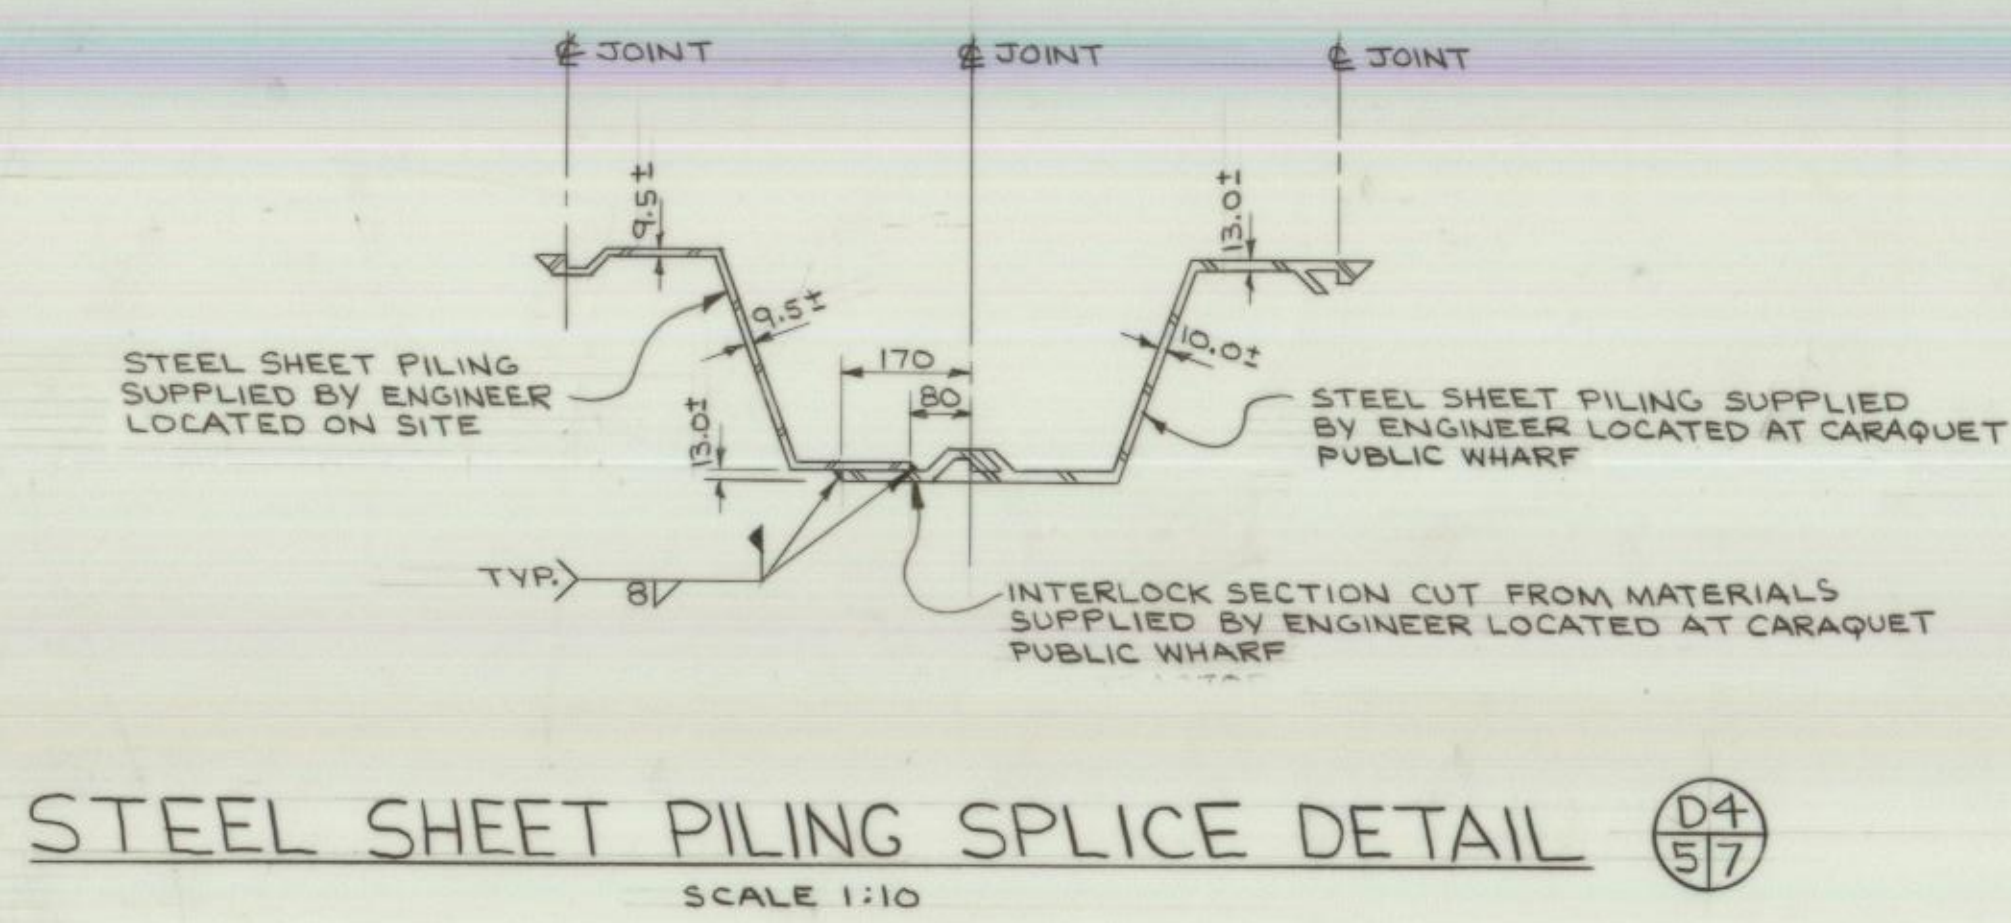 ℄ JOINT
℄ JOINT
℄ JOINT
9.5±
13.0±
9.5±
10.0±
170
80
13.0±
STEEL SHEET PILING
SUPPLIED BY ENGINEER
LOCATED ON SITE
STEEL SHEET PILING SUPPLIED
BY ENGINEER LOCATED AT CARAQUET
PUBLIC WHARF
TYP.
8
INTERLOCK SECTION CUT FROM MATERIALS
SUPPLIED BY ENGINEER LOCATED AT CARAQUET
PUBLIC WHARF
STEEL SHEET PILING SPLICE DETAIL
D4
5 7
SCALE 1:10